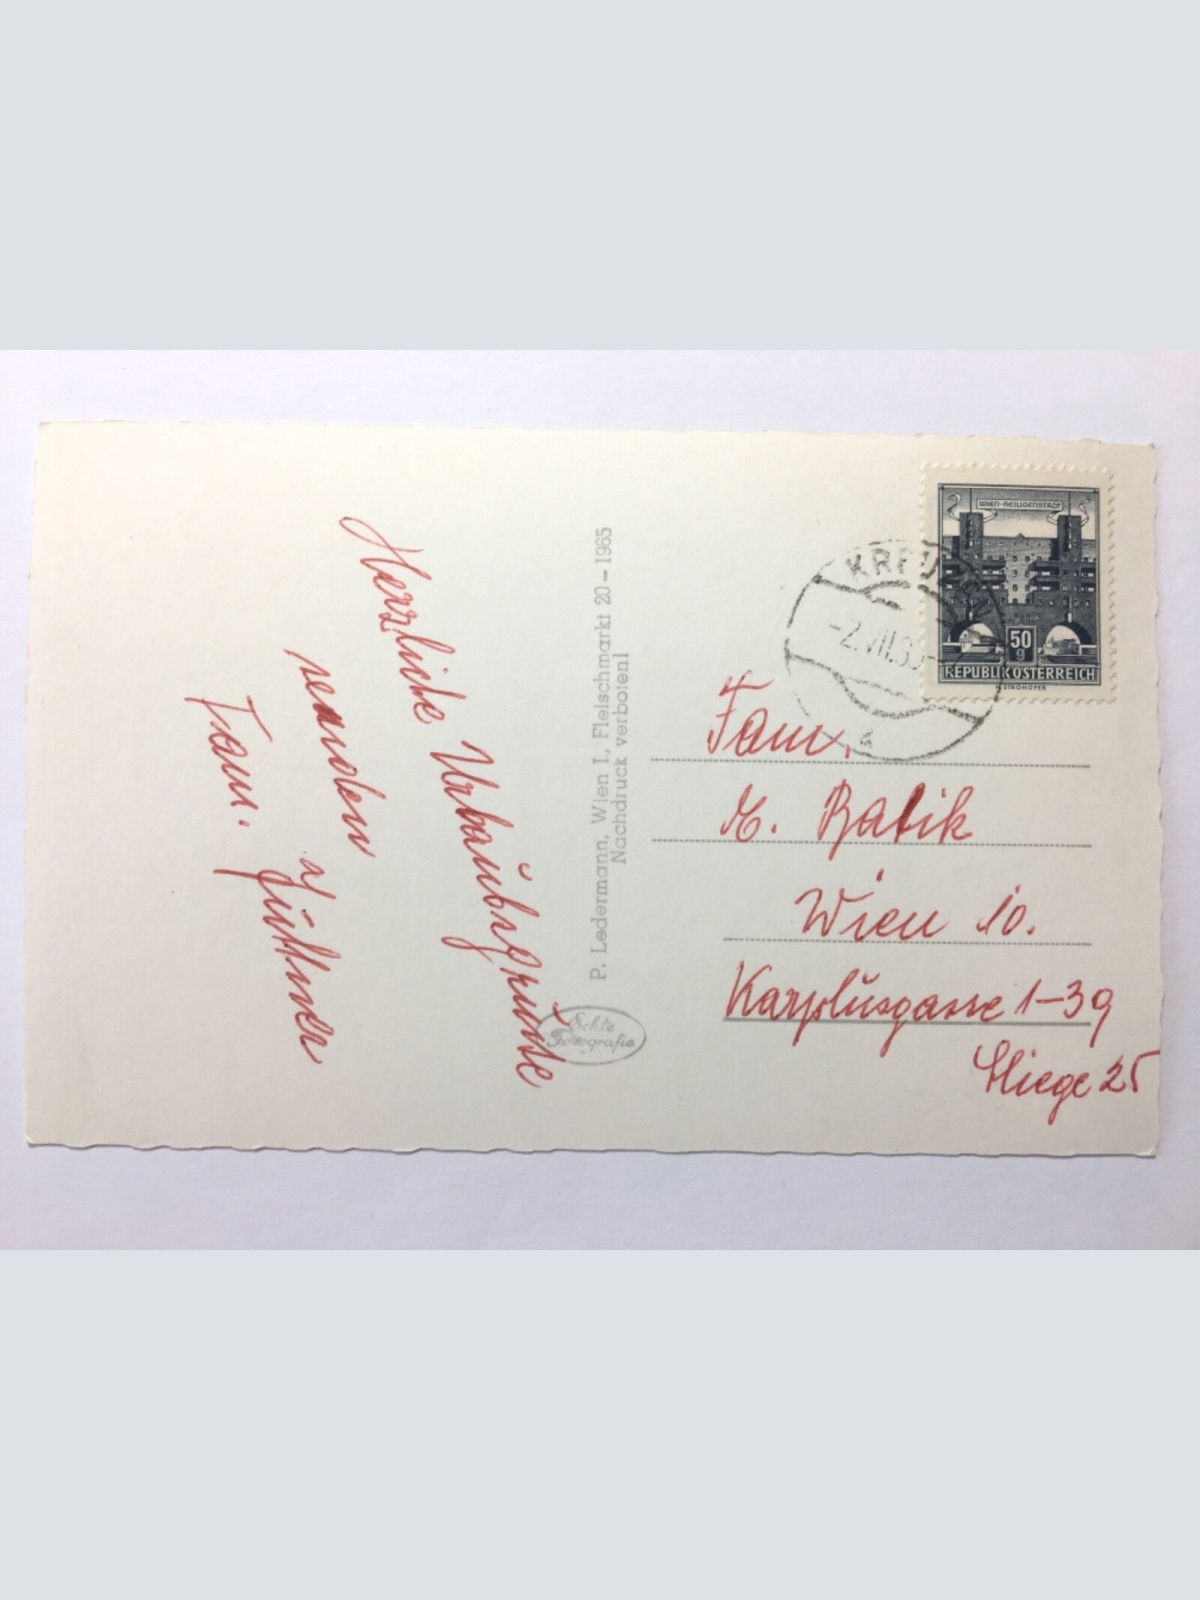 Herzliche Urlaubsgrüße
senden
Fam. Jüttner
P. Ledermann, Wien I., Fleischmarkt 20 – 1965
Nachdruck verboten!
Echte
Fotografie
WIEN-HEILIGENSTADT
50
g
REPUBLIK ÖSTERREICH
KREUZEN
-2.VII.6
a
Fam.
M. Batik
Wien 10.
Karplusgasse 1-39
Stiege 25